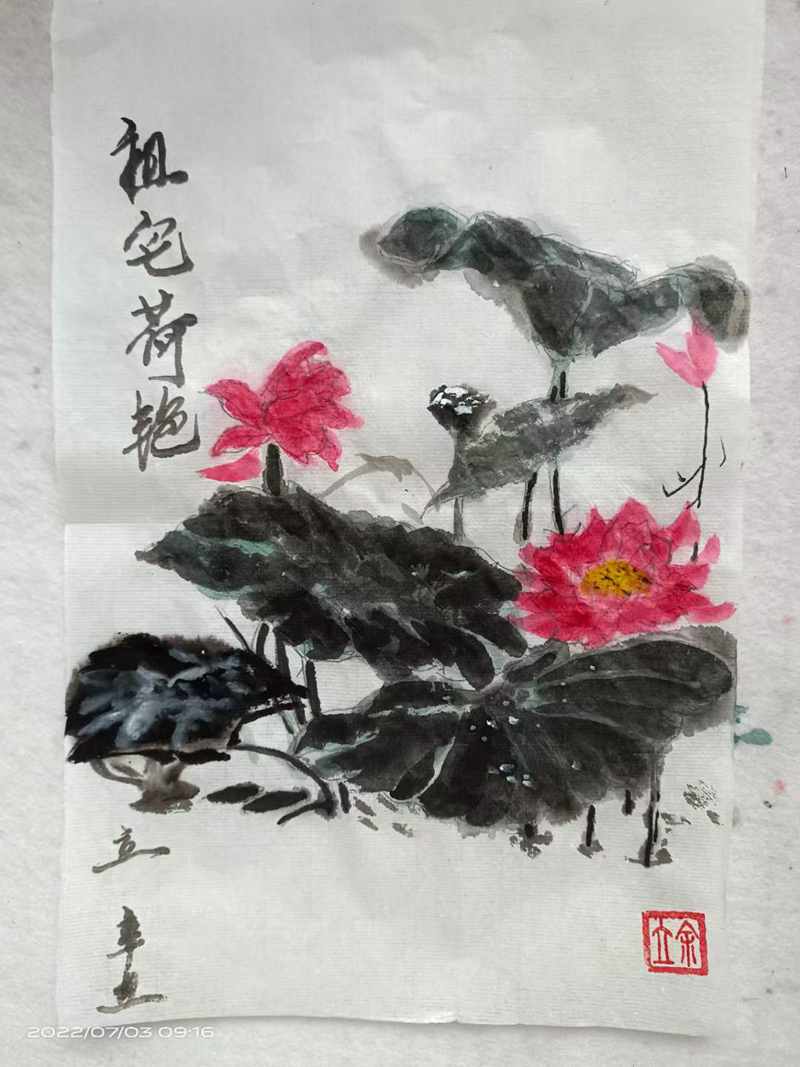 祖宅荷艳
立
余立
2022/07/03 09:16